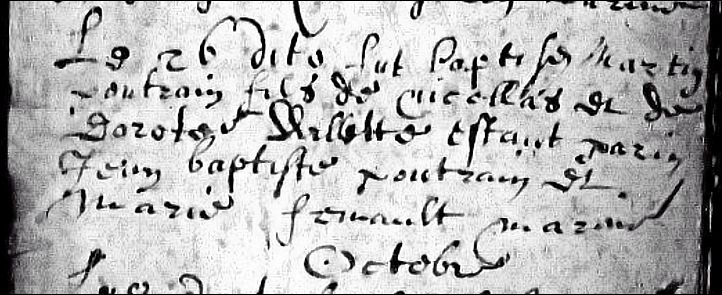 Le 26 dito fut baptisé Martin
poutrain fils de Nicollas et de
Dorotee estant parin
Jean baptiste poutrain et
Marie marine
Octobre